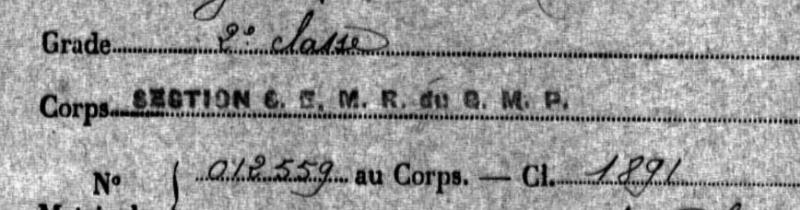 Grade 2e classe
Corps SECTION S. E. M. R. du G. M. P.
No 012559 au Corps. — Cl. 1891